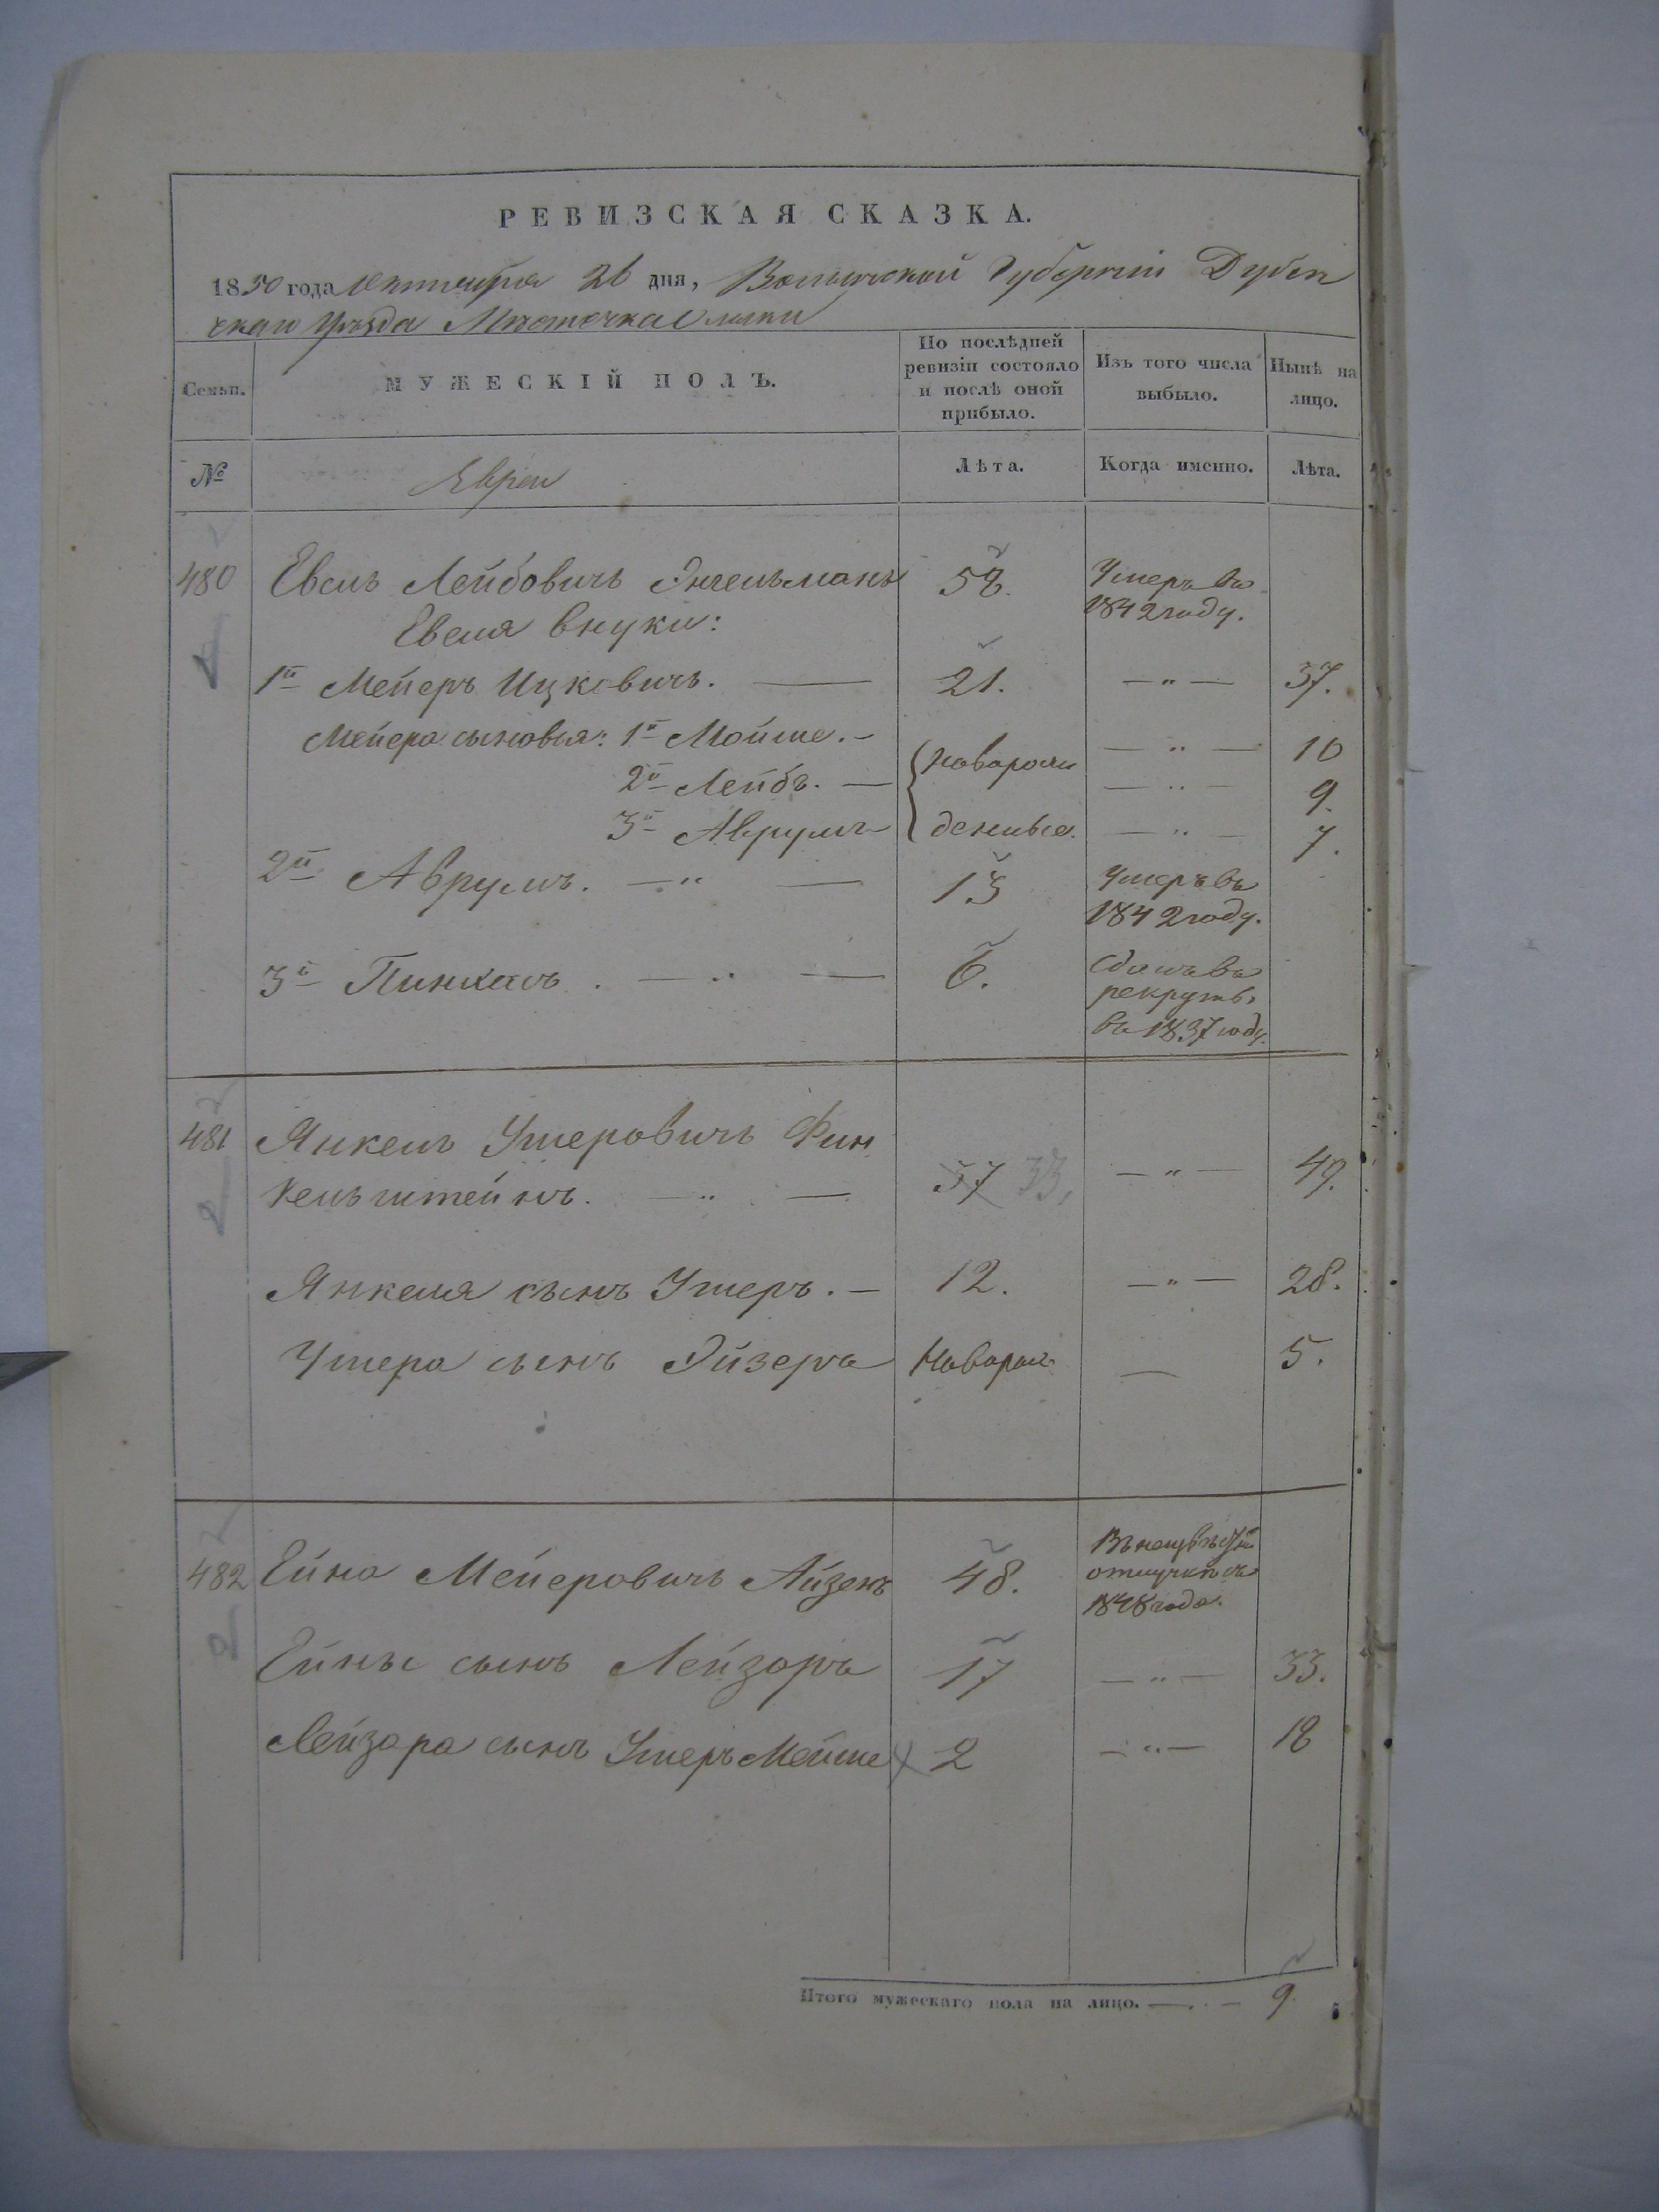 РЕВИЗСКАЯ СКАЗКА.
1850 года Октября 26 дня, Волынской Губерніи Дубен
скаго уѣзда Мѣстечка Олыки
Семьи.
МУЖЕСКІЙ ПОЛЪ.
По послѣдней
ревизіи состояло
и послѣ оной
прибыло.
Изъ того числа
выбыло.
Нынѣ на
лицо.
№
Евреи
Лѣта.
Когда именно.
Лѣта.
480 Евель Лейбовичъ Энгельманъ 58. Умеръ въ
1842 году.
Евеля внуки:
1й Мейеръ Ицковичъ. — 21. — " — 37.
Мейера сыновья: 1й Мойше. — новорож — " — 10
2й Лейбъ. — — " — 9.
3й Аврумъ — денные. — " — 7.
2й Аврумъ. — " — 13 Умеръ въ
1842 году.
3й Пинхасъ. — " — 6. Сданъ въ
рекруты
въ 1837 году.
481 Янкель Умеровичъ Фин
кельштейнъ. — " — 37 33, — " — 49.
Янкеля сынъ Умеръ. — 12. — " — 28.
Умера сынъ Эйзеръ Новорож — 5.
482 Ейна Мейеровичъ Айзенъ 48. Въ неизвѣстной
отлучкѣ съ
1848 года.
Ейны сынъ Лейзоръ 17 — " — 33.
Лейзара сынъ Умеръ Мойше 2 — " — 18
Итого мужескаго пола на лицо. — " — 9.